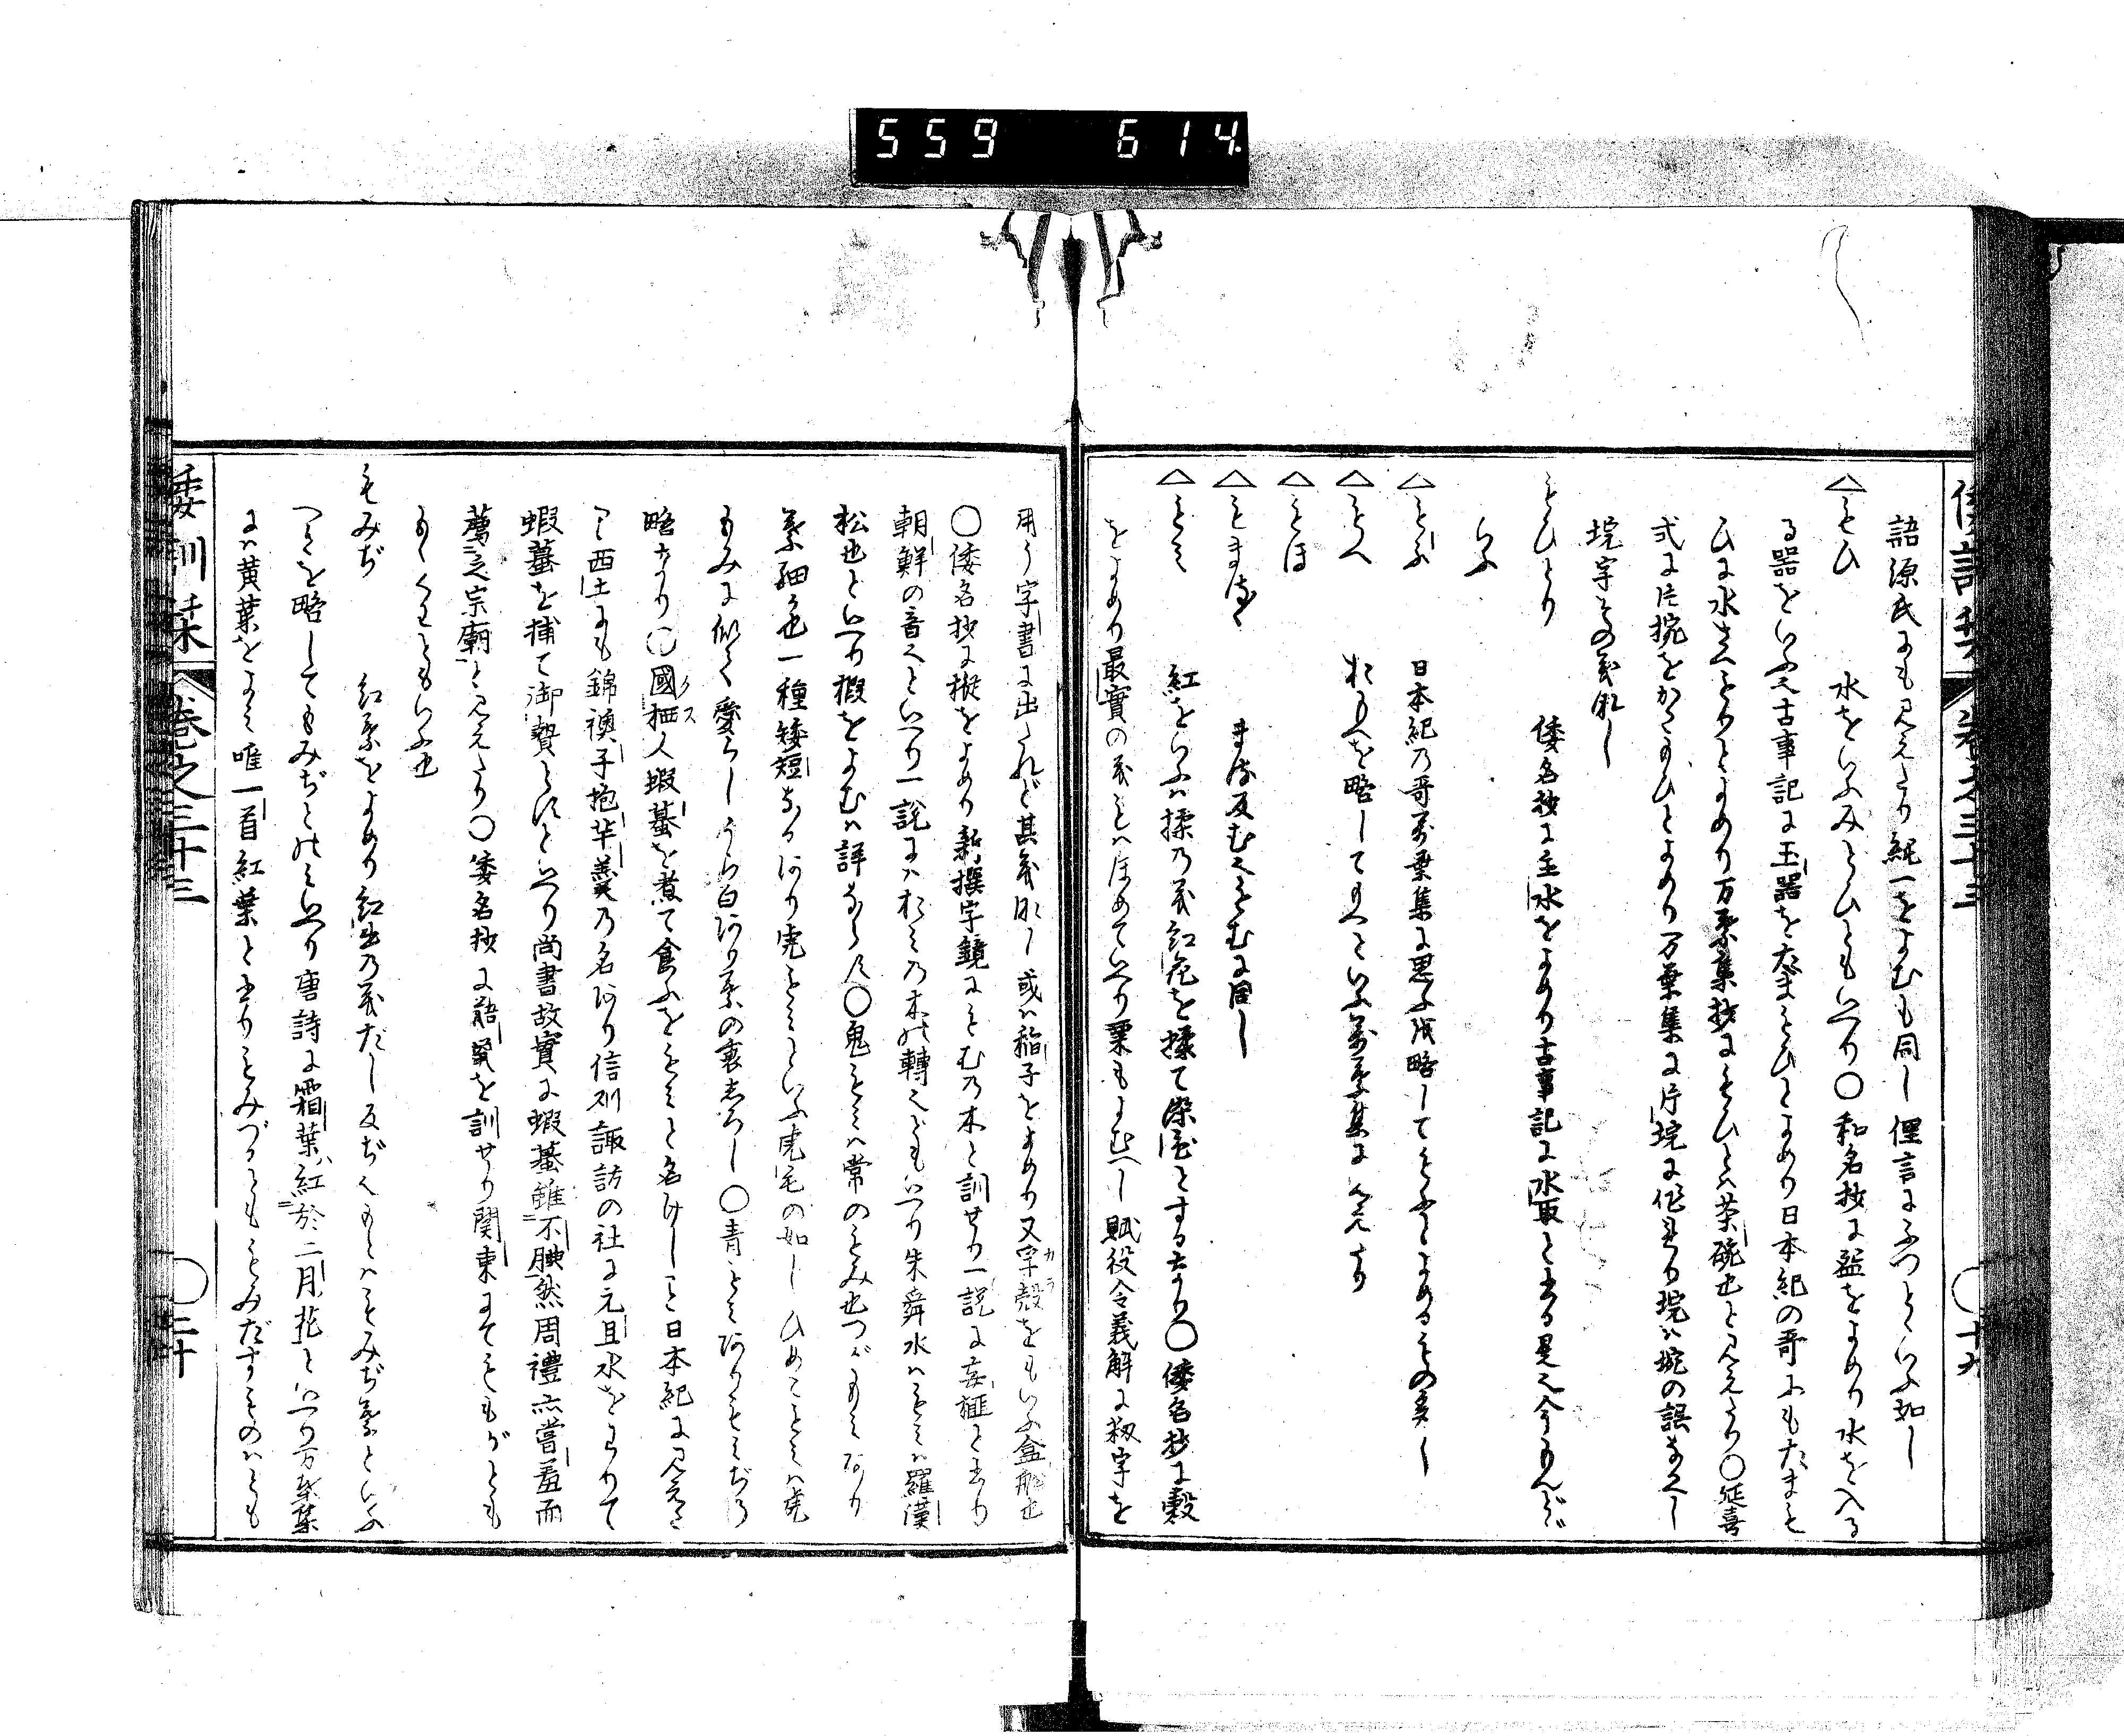 559 614
倭訓栞 巻之三十三 ○十九
語源氏にも見えたり純一をよむも同し俚言にふつといふ如し
△もひ 水をいふみもひともいへり○和名抄に盌をよめり水を入る
る器をいふ也古事記に玉器をたまもひとよめり日本紀の哥にもたまも
ひに水さへもりとよめり万葉集抄にもひとハ茶碗也と見えたり○延喜
式に片椀をかたもひとよめり万葉集に片垸に作れり垸ハ埦の誤なるへし
垸字その義なし
もひとり 倭名抄に主水をよめり古事記に水取と書る是也今もんど
いふ
△もふ 日本紀の哥萬葉集に思ふ也略してもふとよめるもの多し
△もへ おもへを略してもへといふ萬葉集に見えたり
△もほ
△もまる
まる反む也もむに同し
△もみ 紅をいふハ揉の義紅花を揉て染色とするなり○倭名抄に穀
をよめり最實の義もハほめていへり粟もよむへし賦役令義解に籾字を
用う字書に出たれど其義なし或ハ稲子をよめり又字殻をもいふ盒舵也
○倭名抄に樅をよめり新撰字鏡にもむの木と訓せり一説に
朝鮮の音也といへり一説にハおみの木の轉也ともいへり朱舜水ハもみハ羅漢
松也といへり椵をよむハ詳ならす○鬼もみハ常のもみ也つがもみあり
葉細き也一種矮短なるあり虎もみといふ虎毛の如しひめこもみハ虎
もみに似て愛らしうら白あり葉の裏しろし○青もみありもみぢの
略なり○國栖人蝦蟇を煮て食ふをもみと名けしこと日本紀に見えた
り西土にも錦襖子抱芋羹の名あり信州諏訪の社に元旦氷をわりて
蝦蟇を捕て御贄とすといへり尚書故實に蝦蟇雖不腆然周禮亦嘗羞而
薦之宗廟と見えたり○倭名抄に を訓せり関東にてももがとも
もゝくわともいふ也
もみぢ 紅葉をよめり紅出の義だし反ぢ也もとハもみぢ葉といふ
へきを略してもみぢとのミいへり唐詩に霜葉紅於二月花といへり万葉集
にハ黄葉をよミ唯一首紅葉と書りもみづるとももみだすものハとも
倭訓栞 巻之三十三 ○二十